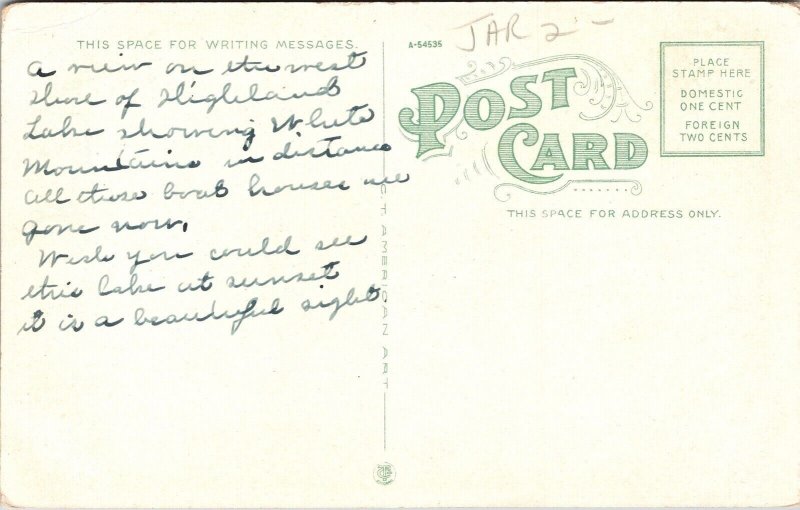 THIS SPACE FOR WRITING MESSAGES.
A view on the west
shore of Highland
Lake showing White
Mountains in distance
all these boat houses are
gone now.
Wish you could see
this lake at sunset
it is a beautiful sight
A-54535
JAR 2 -
POST
CARD
PLACE
STAMP HERE
DOMESTIC
ONE CENT
FOREIGN
TWO CENTS
THIS SPACE FOR ADDRESS ONLY.
C.T. AMERICAN ART